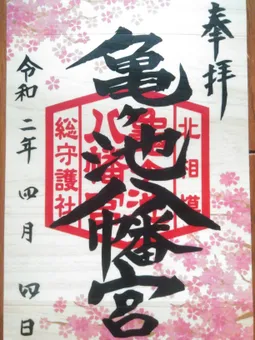 奉拝
北相模
亀ヶ池
八幡宮
総守護社
亀ヶ池八幡宮
令和二年四月四日